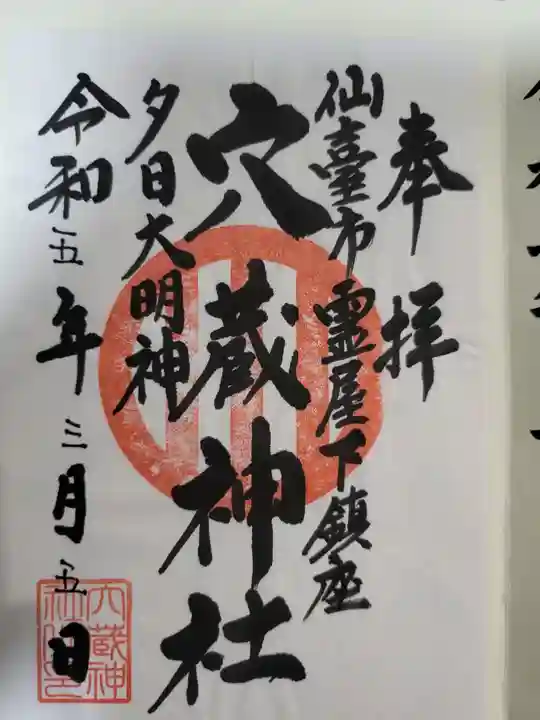 奉拝
仙臺市霊屋下鎮座
穴蔵神社
夕日大明神
令和五年三月五日
穴蔵神